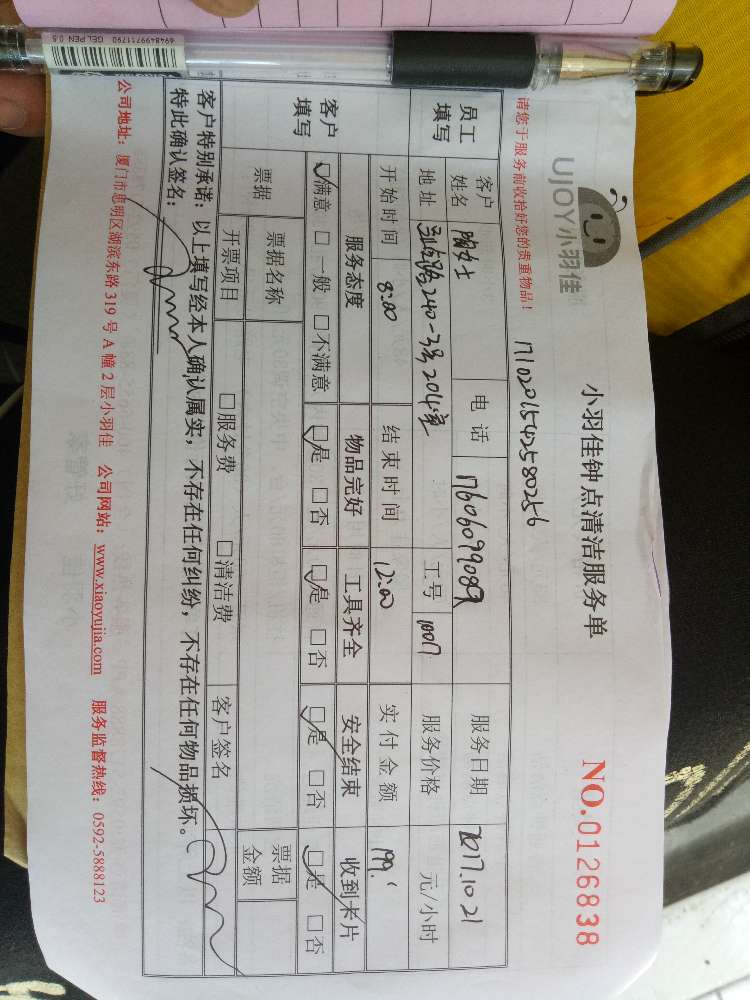 6948499711790 GEL PEN 0.5
UJOY小羽佳
小羽佳钟点清洁服务单
NO.0126838
请您于服务前收拾好您的贵重物品！
1710201542580256
员工填写 客户姓名 陶女士 电话 17606099089 服务日期 2017.10.21
地址 240-3号204室 工号 1007 服务价格 元/小时
开始时间 8:00 结束时间 12:00 实付金额 199.
客户填写 服务态度 物品完好 工具齐全 安全结束 收到卡片
☑满意 □一般 □不满意 ☑是 □否 ☑是 □否 ☑是 □否 ☑是 □否
票据 票据名称 票据金额
开票项目 □服务费 □清洁费 客户签名
客户特别承诺：以上填写经本人确认属实，不存在任何纠纷，不存在任何物品损坏。
特此确认签名：
公司地址：厦门市思明区湖滨东路 319 号 A 幢 2 层小羽佳 公司网站：www.xiaoyujia.com 服务监督热线：0592-5888123